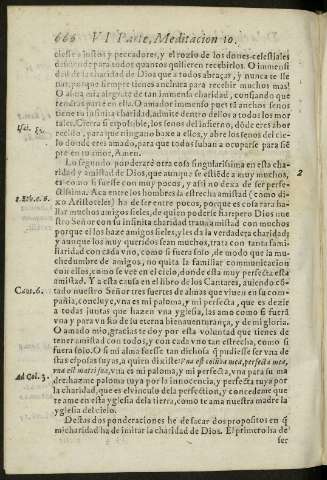 666 VI Parte, Meditacion 10.
ciesse a justos y pecadores, y el rozio de los dones celestiales
para todos quantos quisieren recebirlos. O immensi
dad de la charidad de Dios que a todos abraçar, y nunca te lle
nas, porque siempre tienes anchura para recebir muchos mas!
O alma mia alegrate de tan immensa charidad, confiando que
tendras parte en ella. O amador immenso pues tã anchos senos
tiene tu infinita charidad, admite dentro dellos a todos los mor
tales. Cierra si es possible, los senos del infierno, dõde eres abor
recido, para que ninguno baxe a ellos, y abre los senos del cie-
lo donde eres amado, para que todos suban a ocuparse para siẽ
pre en tu amor, Amen.
Isai. 5.
Lo segundo ponderarè otra cosa singularissima en esta cha-
ridad y amistad de Dios, que aunque se estiẽde a muy muchos,
es como si fuesse con muy pocos, y assi no dexa de ser perfe-
ctissima. Aca entre los hombres la estrecha amistad (como di-
xo Aristoteles) ha de ser entre pocos, porque es cosa rara ha-
llar muchos amigos fieles, de quien poderse
stro Señor con su infinita charidad trata amistad con muchos
porque el los haze amigos fieles, y les da la verdadera charidad;
y aunque los muy queridos sean muchos, trata con tanta fami-
liaridad con cada vno, como si fuera solo, de modo que la mu-
chedumbre de amigos, no quita la familiar communicacion
con ellos, como se vee en el cielo, donde esta muy perfecta esta
amistad. Y a esta causa en el libro de los Cantares, auiendo cõ-
tado nuestro Señor tres suertes de almas que viuen en su com-
pañia, concluye, vna es mi paloma, y mi perfecta, que es dezir
a todas juntas que hazen vna yglesia, las amo como si fuera
vna y para vn fin de su eterna bienauenturança, y de mi gloria.
O amado mio, gracias te doy por esta voluntad que tienes de
tener amistad con todos, y con cada vno tan estrecha, como si
fuera solo. O si mi alma fuesse tan dichosa q̃ pudiesse ser vna de
stas esposas tuyas, a quien dixiste: vna est columba mea, perfecta mea,
vna est matri suæ, vna es mi paloma, y mi perfecta, vna para su ma
dre: hazme paloma tuya por la innocencia, y perfecta tuya por
la charidad, que es el vinculo de la perfection, y concedeme que
te ame en esta yglesia de la tierra, como te ama nuestra madre la
yglesia del cielo.
2
Cant. 6.
Ad Col. 3.
Destas dos ponderaciones he de sacar dos propositos en q̃
mi charidad ha de imitar la charidad de Dios. El primero ha de
ser